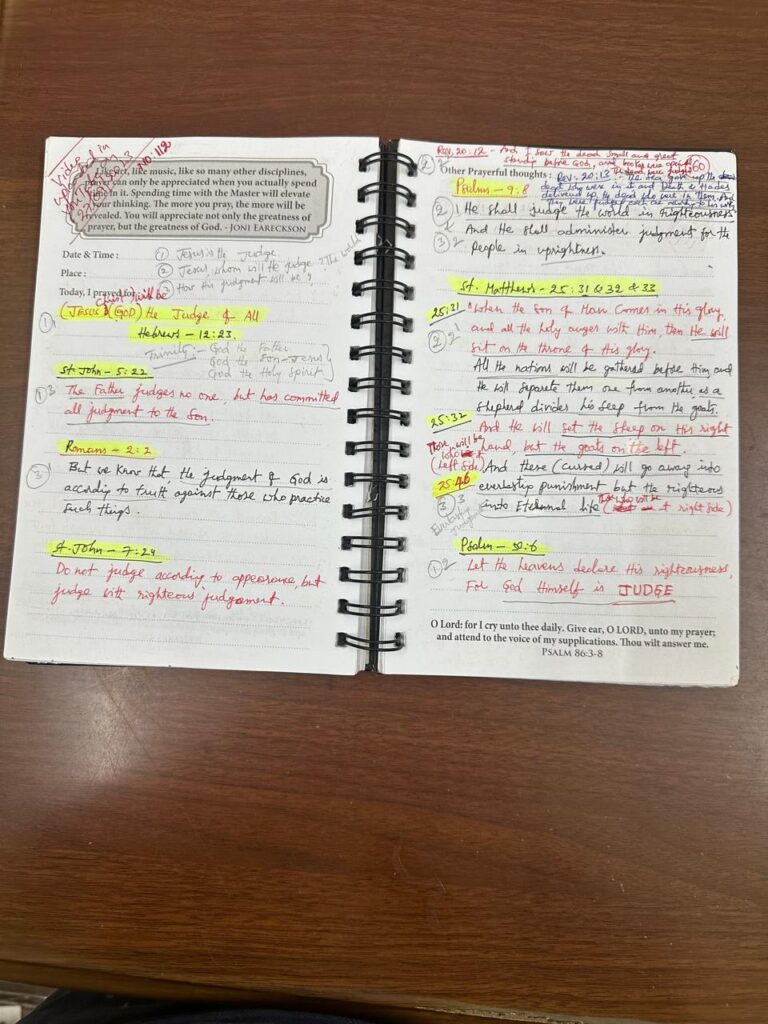 Video
uploaded in
No: 112
like music, like so many other disciplines,
can only be appreciated when you actually spend
time in it. Spending time with the Master will elevate
your thinking. The more you pray, the more will be
revealed. You will appreciate not only the greatness of
prayer, but the greatness of God. - JONI EARECKSON
Date & Time :
① Jesus is the Judge
Place :
② Jesus whom will He judge ? The world
Today, I prayed for
③ How His judgment will be ?
(Christ) will be
① (JESUS) (GOD) the Judge of All
Hebrews - 12:23.
Trinity :- God the Father
God the Son - Jesus
God the Holy Spirit
St. John - 5:22
① 3 The Father judges no one, but has committed
all judgment to the Son.
Romans - 2:2
③ But we know that, the judgment of God is
according to truth against those who practice
such things.
St. John - 7:24
Do not judge according to appearance, but
judge with righteous judgement.
Rev. 20:12 - And I saw the dead small and great
standing before God, and books were opened
60
② 2 Other Prayerful thoughts :
The dead were judged
Rev. 20:13 :- The sea gave up the
dead who were in it and Death & Hades
delivered up the dead who were in them. And
they were judged each one according to his works
Psalms - 9:8
② 1 He shall judge the world in righteousness
And He shall administer judgment for the
③ 2 people in uprightness.
St. Matthews - 25:31 & 32 & 33
25:31 "When the Son of Man comes in His glory,
and all the holy anges with Him, then He will
② 2 1 sit on the throne of His glory.
All the nations will be gathered before Him and
He will separate them one from another, as a
shepherd divides his seep from the goats.
25:32 And He will set the sheep on His right
hand, but the goats on the left.
Those will be
(Left side) And these (cursed) will go away into
25:46 everlasting punishment but the righteous
③ 3 into Eternal life (those who will be at right side)
Everlasting
Psalm - 50:6
① 2 Let the heavens declare His righteousness,
For God Himself is JUDGE
O Lord: for I cry unto thee daily. Give ear, O LORD, unto my prayer;
and attend to the voice of my supplications. Thou wilt answer me.
PSALM 86:3-8